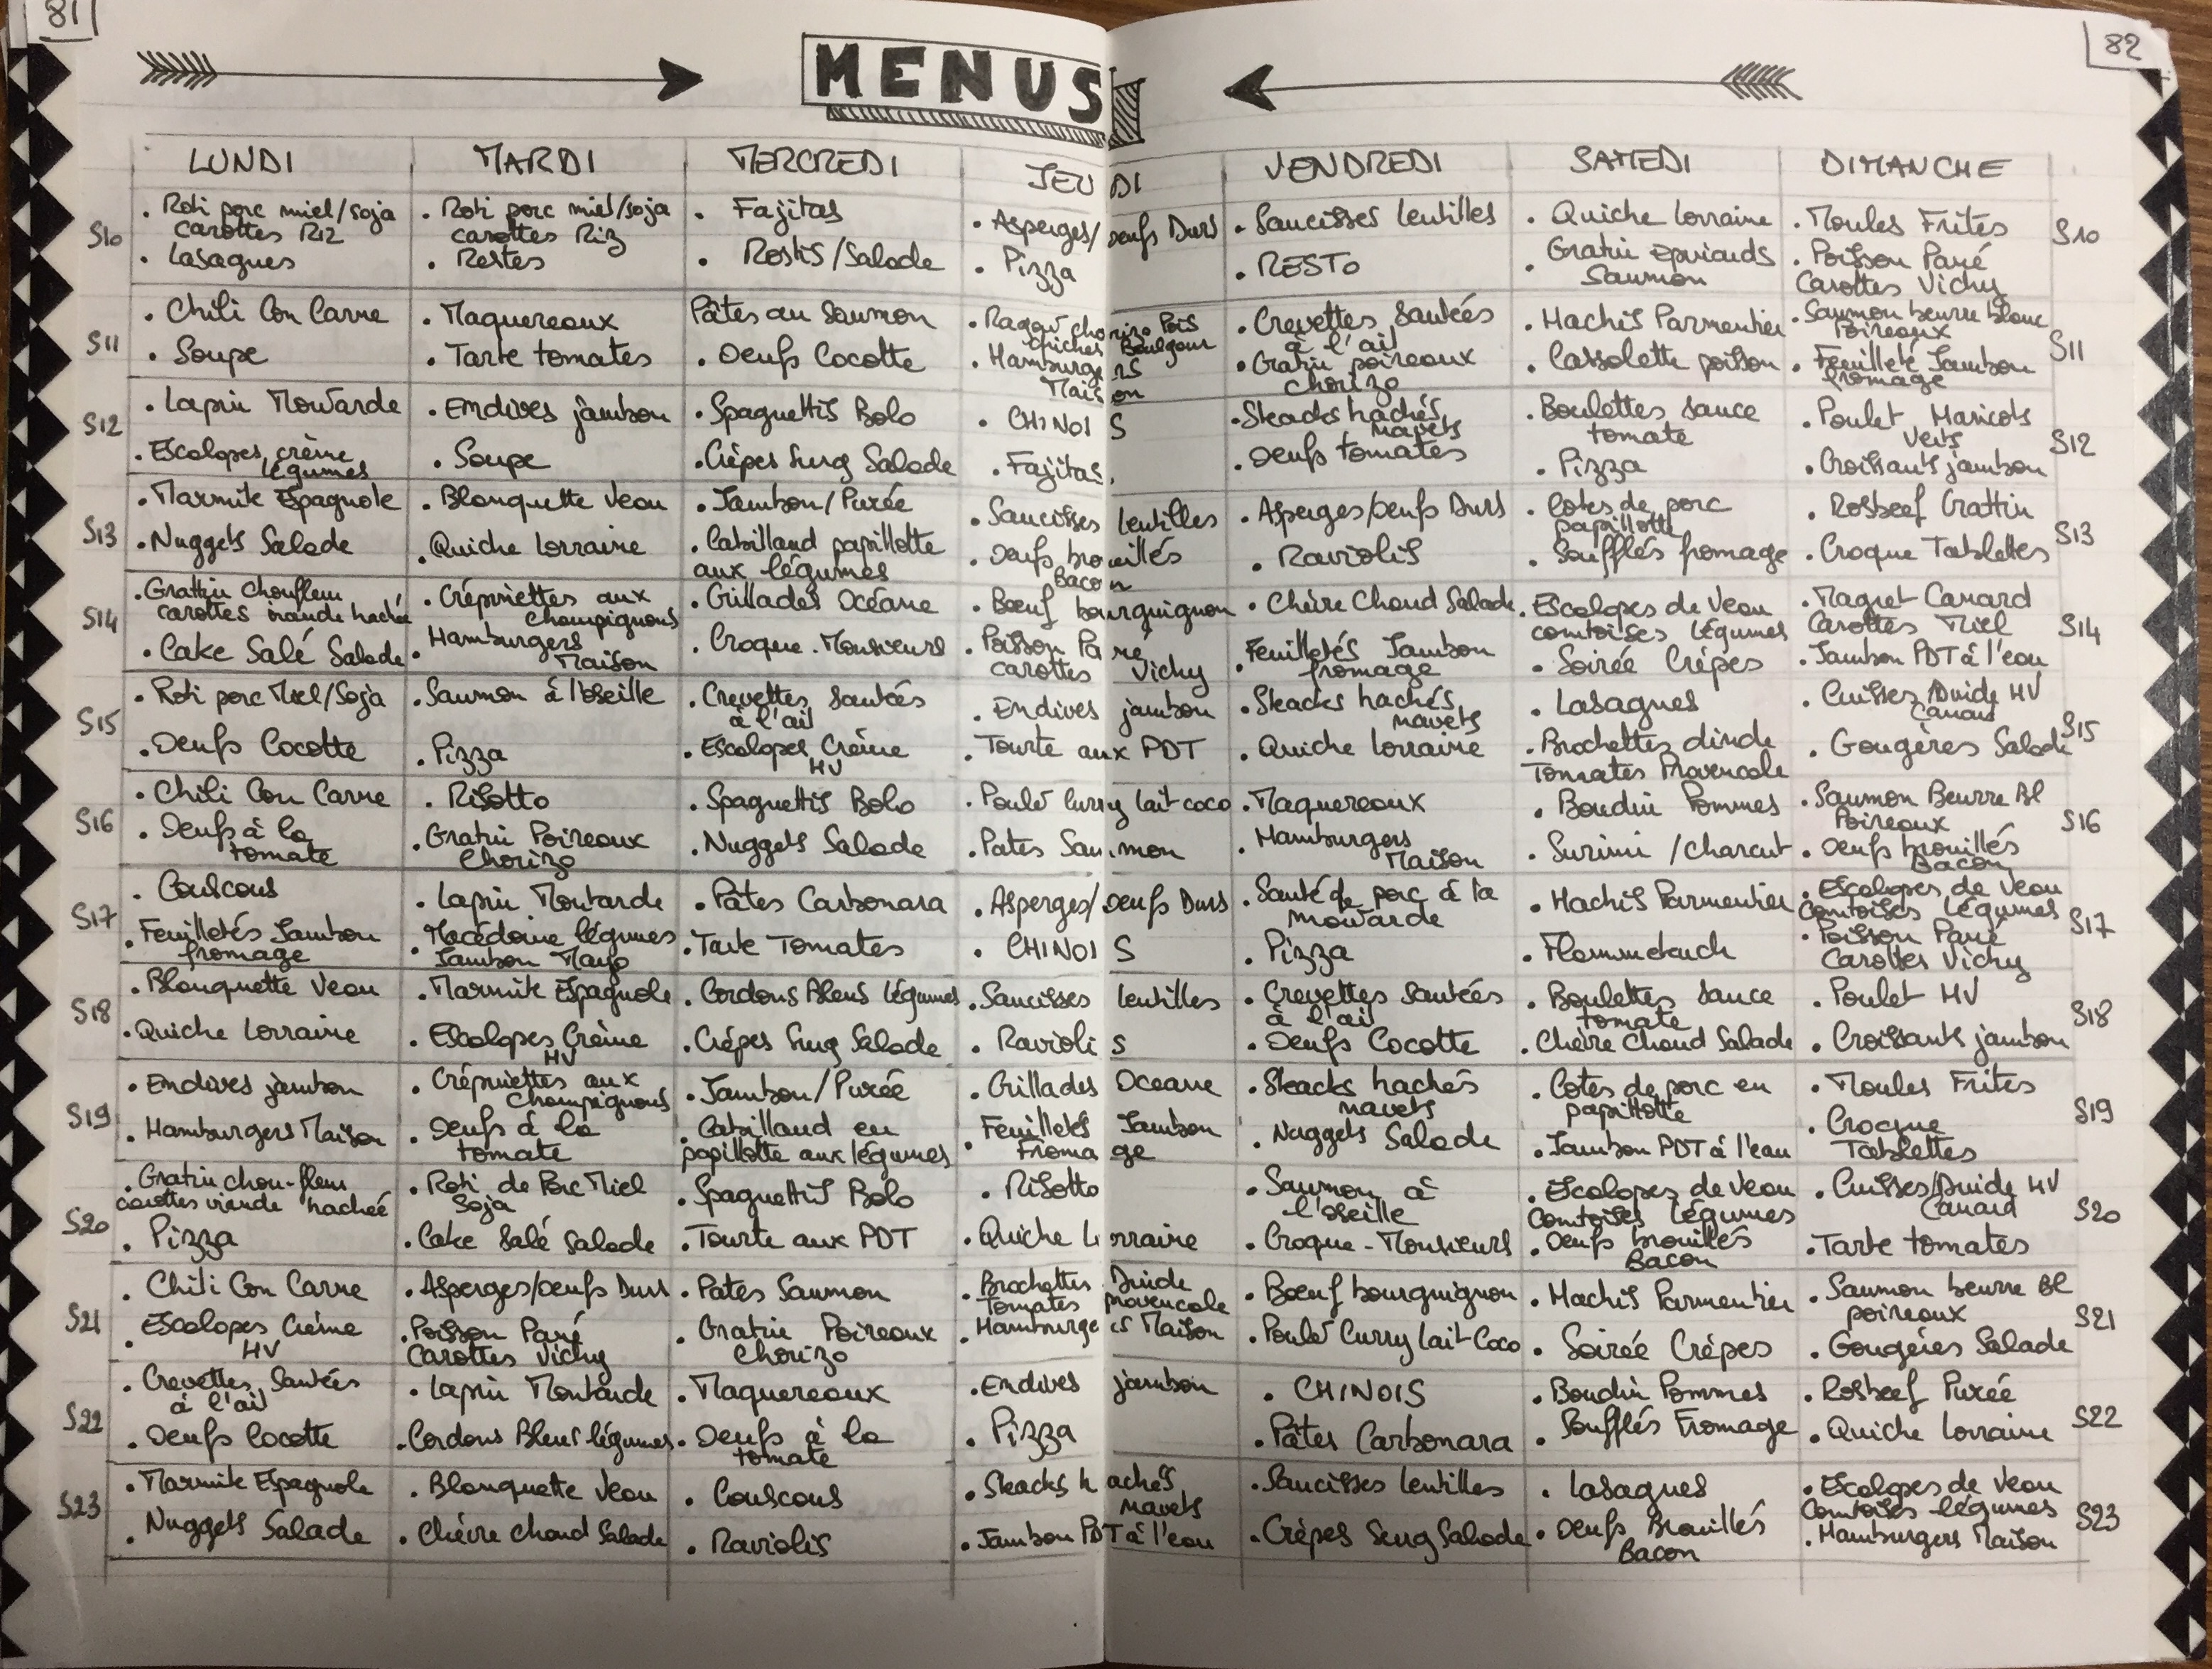 81
82
MENUS
LUNDI MARDI MERCREDI JEUDI VENDREDI SAMEDI DIMANCHE
S10
. Roti porc miel/soja
carottes Riz
. Lasagnes
. Roti porc miel/soja
carottes Riz
. Restes
. Fajitas
. Rostis/Salade
. Asperges/oeufs Durs
. Pizza
. Saucisses lentilles
. RESTO
. Quiche lorraine
. Gratin épinards
Saumon
. Moules Frites
. Poisson Pané
Carottes Vichy
S10
S11
. Chili Con Carne
. Soupe
. Maquereaux
. Tarte tomates
Pâtes au Saumon
. Oeufs Cocotte
. Ragout chorizo Pois
chiches Boulgour
. Hamburgers
Maison
. Crevettes sautées
à l'ail
. Gratin poireaux
chorizo
. Hachis Parmentier
. Cassolette poisson
. Saumon beurre blanc
Poireaux
. Feuilleté Jambon
fromage
S11
S12
. Lapin Moutarde
. Escalopes crème
légumes
. Endives jambon
. Soupe
. Spaghettis Bolo
. Crêpes Surg Salade
. CHINOIS
. Fajitas
. Steacks hachés
navets
. Oeufs tomates
. Boulettes sauce
tomate
. Pizza
. Poulet Haricots
Verts
. Croissants jambon
S12
S13
. Marmite Espagnole
. Nuggets Salade
. Blanquette Veau
. Quiche lorraine
. Jambon/Purée
. Cabillaud papillotte
aux légumes
. Saucisses lentilles
. Oeufs brouillés
Bacon
. Asperges/oeufs Durs
. Raviolis
. Cotes de porc
papillotte
. Soufflés fromage
. Rosbeef Grattin
. Croque Tablettes
S13
S14
. Grattin Choufleur
carottes viande hachée
. Cake Salé Salade
. Crépinettes aux
champignons
. Hamburgers
Maison
. Grillades Océane
. Croque-Monsieurs
. Bœuf bourguignon
. Poisson Pané
carottes Vichy
. Chèvre Chaud Salade
. Feuilletés Jambon
fromage
. Escalopes de Veau
comtoises légumes
. Soirée Crêpes
. Magret Canard
Carottes Miel
. Jambon PDT à l'eau
S14
S15
. Roti porc Miel/Soja
. Oeufs Cocotte
. Saumon à l'oseille
. Pizza
. Crevettes sautées
à l'ail
. Escalopes Crème
HV
. Endives jambon
. Tourte aux PDT
. Steacks hachés
navets
. Quiche lorraine
. Lasagnes
. Brochettes dinde
Tomates Provencale
. Cuisses/Dinde HV
Canard
. Gougères Salade
S15
S16
. Chili Con Carne
. Oeufs à la
tomate
. Risotto
. Gratin Poireaux
Chorizo
. Spaghettis Bolo
. Nuggets Salade
. Poulet Curry lait coco
. Pates Saumon
. Maquereaux
. Hamburgers
Maison
. Boudin Pommes
. Surimi /charcut
. Saumon Beurre Bl
Poireaux
. Oeufs brouillés
Bacon
S16
S17
. Couscous
. Feuilletés Jambon
fromage
. Lapin Moutarde
. Macédoine légumes
Jambon Mayo
. Pâtes Carbonara
. Tarte Tomates
. Asperges/oeufs Durs
. CHINOIS
. Sauté de porc à la
moutarde
. Pizza
. Hachis Parmentier
. Flammekuch
. Escalopes de Veau
Comtoises légumes
. Poisson Pané
Carottes Vichy
S17
S18
. Blanquette Veau
. Quiche lorraine
. Marmite Espagnole
. Escalopes Crème
HV
. Cordons Bleus légumes
. Crêpes Surg Salade
. Saucisses lentilles
. Raviolis
. Crevettes Sautées
à l'ail
. Oeufs Cocotte
. Boulettes sauce
tomate
. Chèvre Chaud Salade
. Poulet HV
. Croissants jambon
S18
S19
. Endives jambon
. Hamburgers Maison
. Crépinettes aux
champignons
. Oeufs à la
tomate
. Jambon/Purée
. Cabillaud en
papillotte aux légumes
. Grillades Oceane
. Feuilletés Jambon
Fromage
. Steacks hachés
navets
. Nuggets Salade
. Cotes de porc en
papillotte
. Jambon PDT à l'eau
. Moules Frites
. Croque
Tablettes
S19
S20
. Gratin chou-fleur
carottes viande hachée
. Pizza
. Roti de Porc Miel
Soja
. Cake Salé Salade
. Spaghettis Bolo
. Tourte aux PDT
. Risotto
. Quiche Lorraine
. Saumon à
l'oseille
. Croque-Monsieurs
. Escalopes de Veau
Comtoises légumes
. Oeufs brouillés
Bacon
. Cuisses/Dinde HV
Canard
. Tarte tomates
S20
S21
. Chili Con Carne
. Escalopes Crème
HV
. Asperges/oeufs Durs
. Poisson Pané
Carottes Vichy
. Pates Saumon
. Gratin Poireaux
Chorizo
. Brochettes Dinde
Tomates provencale
. Hamburgers Maison
. Bœuf bourguignon
. Poulet Curry lait-Coco
. Hachis Parmentier
. Soirée Crêpes
. Saumon beurre Bl
poireaux
. Gougères Salade
S21
S22
. Crevettes Sautées
à l'ail
. Oeufs Cocotte
. Lapin Moutarde
. Cordons Bleus légumes
. Maquereaux
. Oeufs à la
tomate
. Endives jambon
. Pizza
. CHINOIS
. Pâtes Carbonara
. Boudin Pommes
. Soufflés Fromage
. Rosbeef Purée
. Quiche lorraine
S22
S23
. Marmite Espagnole
. Nuggets Salade
. Blanquette Veau
. Chèvre Chaud Salade
. Couscous
. Raviolis
. Steacks hachés
navets
. Jambon PDT à l'eau
. Saucisses lentilles
. Crêpes Surg Salade
. Lasagnes
. Oeufs Brouillés
Bacon
. Escalopes de Veau
Comtoises légumes
. Hamburgers Maison
S23